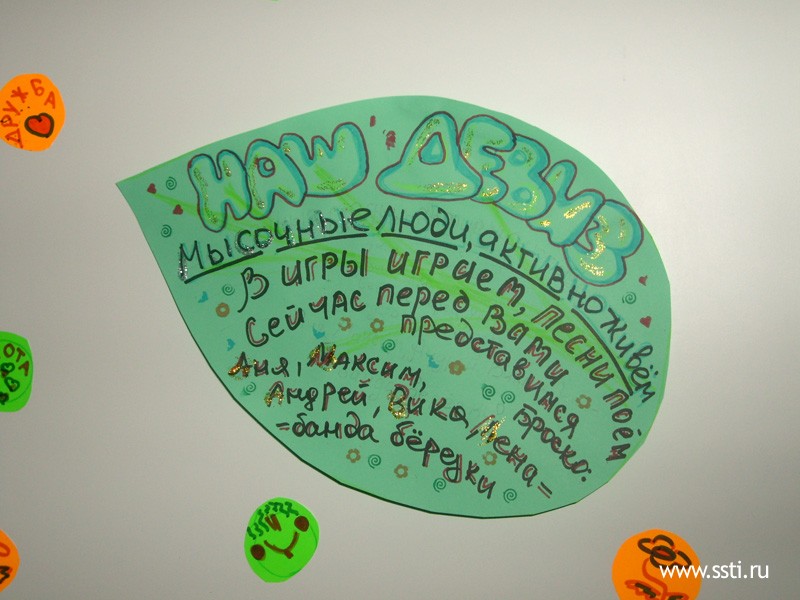 ДРУЖБА
НАШ ДЕВИЗ
Мы сочные люди, активно живём
В игры играем, песни поём
Сейчас перед вами
представимся
броско:
Аня, Максим,
Андрей, Вика,
=банда
ОТА
www.ssti.ru